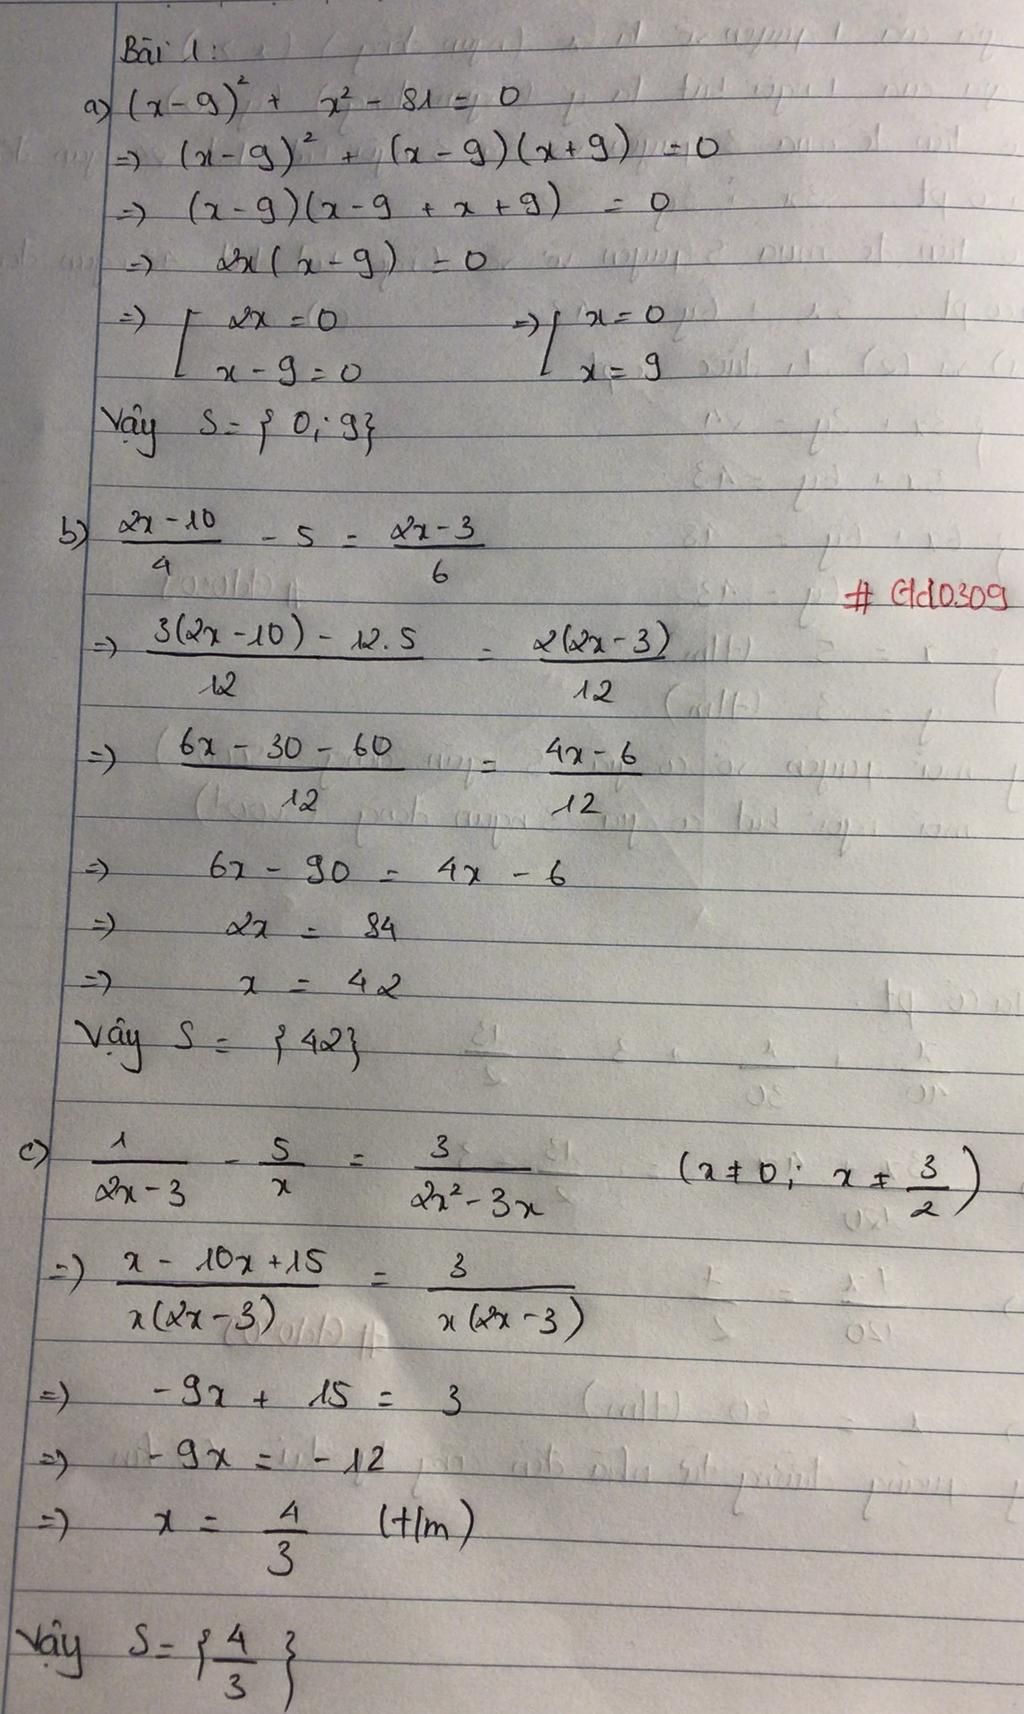 Bài 1:
a) (x-9)² + x² - 81 = 0
=> (x-9)² + (x-9)(x+9) = 0
=> (x-9)(x-9 + x + 9) = 0
=> 2x(x-9) = 0
=> [ 2x = 0 => [ x = 0
x - 9 = 0 x = 9
Vậy S = { 0; 9}
b) (2x-10)/4 - 5 = (2x-3)/6
# Gld0309
=> (3(2x-10) - 12.5)/12 = 2(2x-3)/12
=> (6x - 30 - 60)/12 = (4x-6)/12
=> 6x - 90 = 4x - 6
=> 2x = 84
=> x = 42
Vậy S = {42}
c) 1/(2x-3) - 5/x = 3/(2x²-3x) (x≠0; x ≠ 3/2)
=> (x - 10x+15)/(x(2x-3)) = 3/(x(2x-3))
=> -9x + 15 = 3
=> -9x = -12
=> x = 4/3 (t/m)
Vậy S = {4/3}